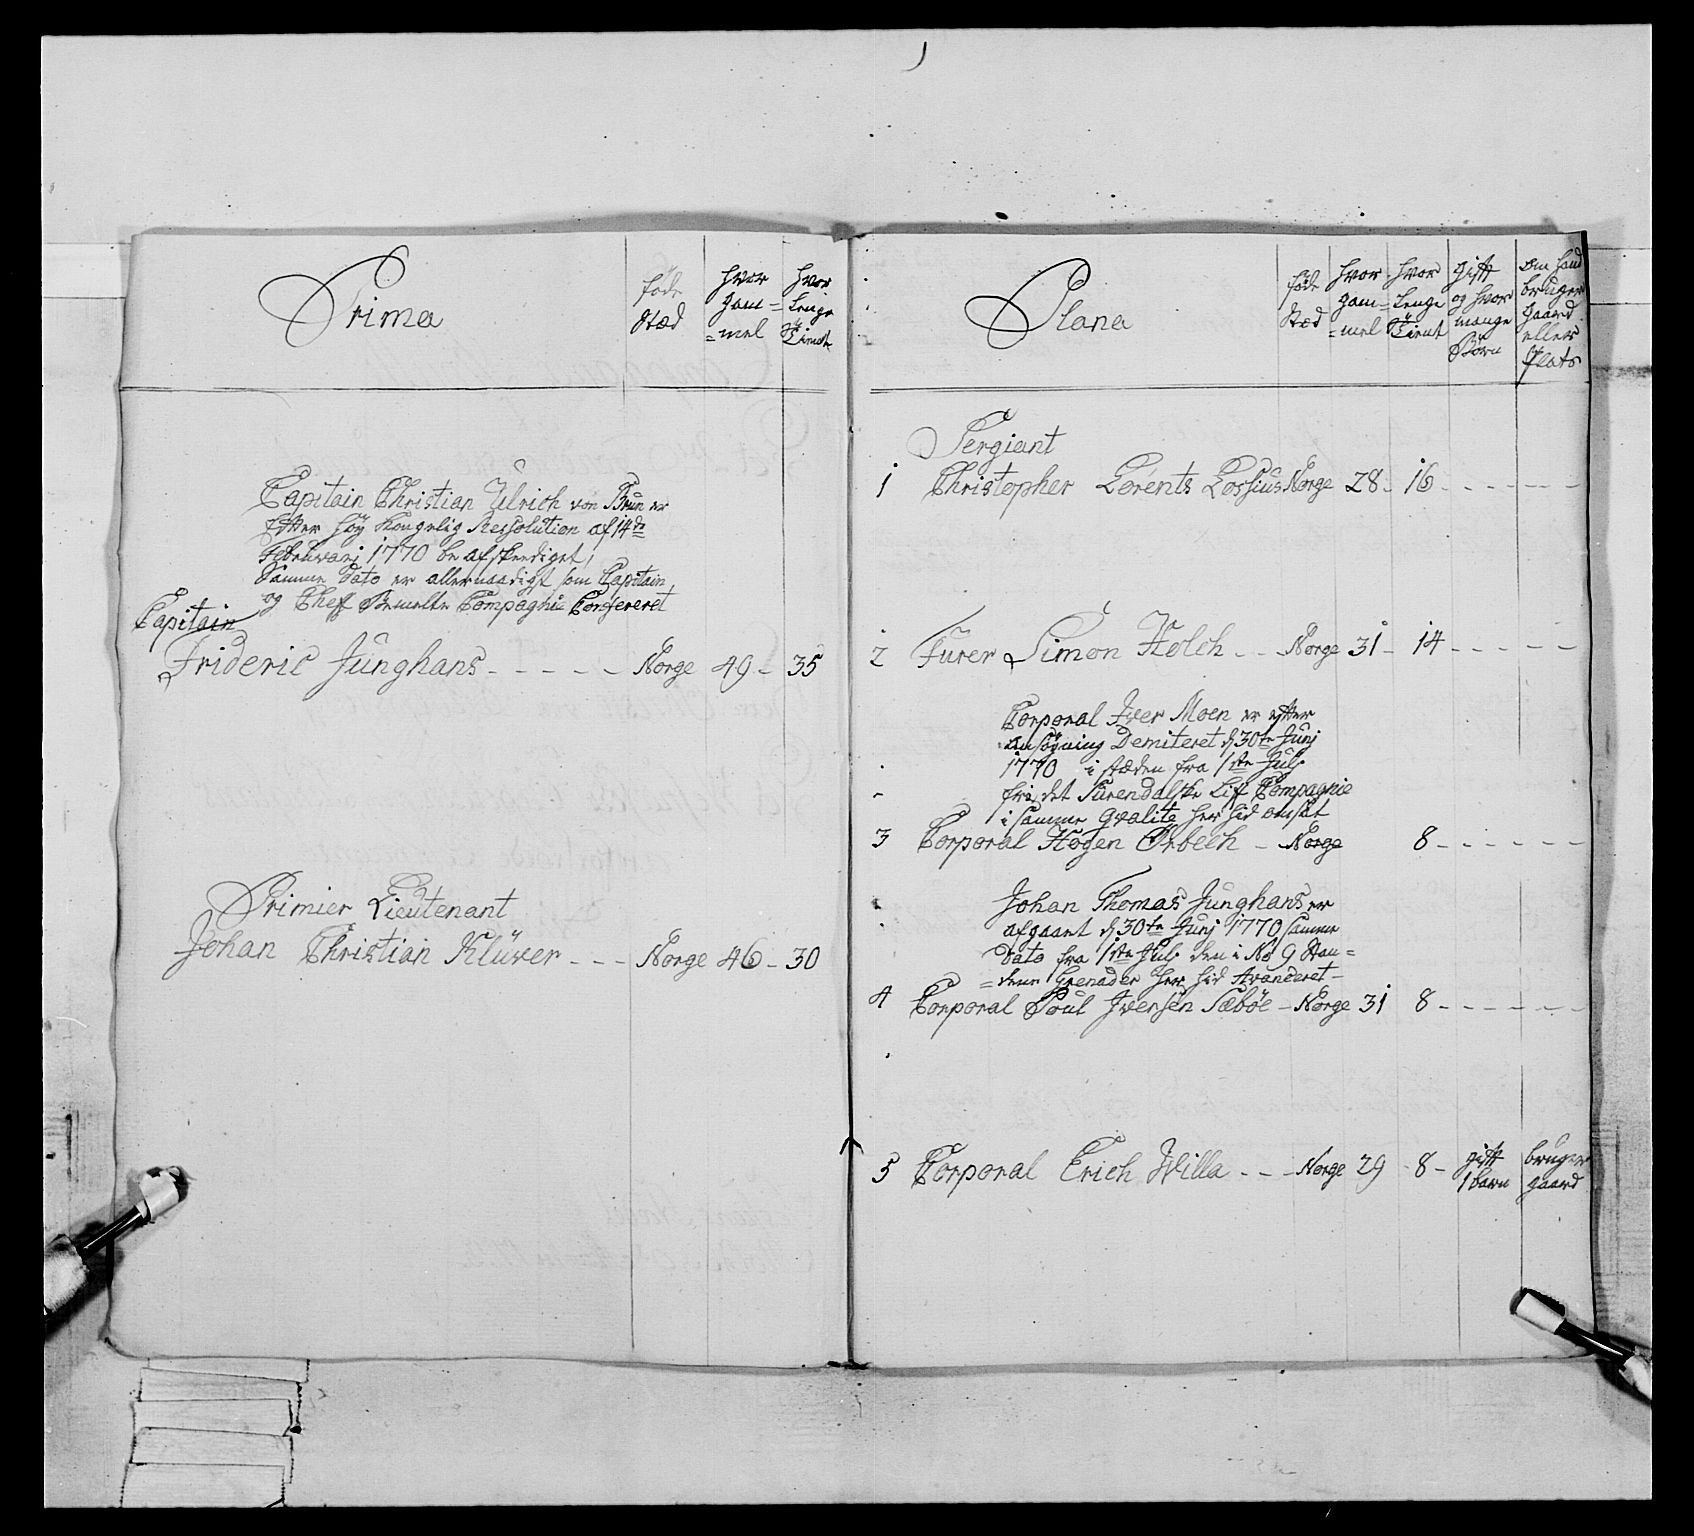 Prima
føde
Stæd
hvor
gam=
=mel
hvor
Lenge
Tient
Capitain Christian Ulrich von Brun er
Efter høy Kongelig Ressolution af 14de
Februarj 1770 be afskeediget,
Samme Dato er allernaadigst som Capitain
og Cheff Bemelte Compagnie Confereret
Capitain
Frideric Junghans - - - - - Norge 49 - 35
Primier Lieutenant
Johan Christian Klüver - - - Norge 46 - 30
Plana
føde
Stæd
hvor
gam=
=mel
hvor
Lenge
Tient
gift
og hvor
mange
Børn
Om hand
bruger
gaard
eller
Plats
Sergiant
1 Christopher Lorents Lossius Norge 28 - 16 - - - - - -
2 Furer Simon Holch - - Norge 31 - 14 - - - - - -
Corporal Iver Moen er efter
ansøgning Demiteret d 30te Junj
1770 i stæden fra 1ste Julj
fra det Surendalske Lif Compagnie
i samme Qvalite her hid ansat
3 Corporal Hogen Orbech - Norge 8 - - - - - -
Johan Thomas Junghans er
afgaaet d 30te Junj 1770 samme
Dato fra 1ste Julj den i No 9 Staa=
=dene Grenader her hid Avanceret -
4 Corporal Poul Iversen Sæbøe - Norge 31 8 - - - - - -
5 Corporal Erich Willa - - - Norge 29 - 8 - gift bruger
1 barn gaard